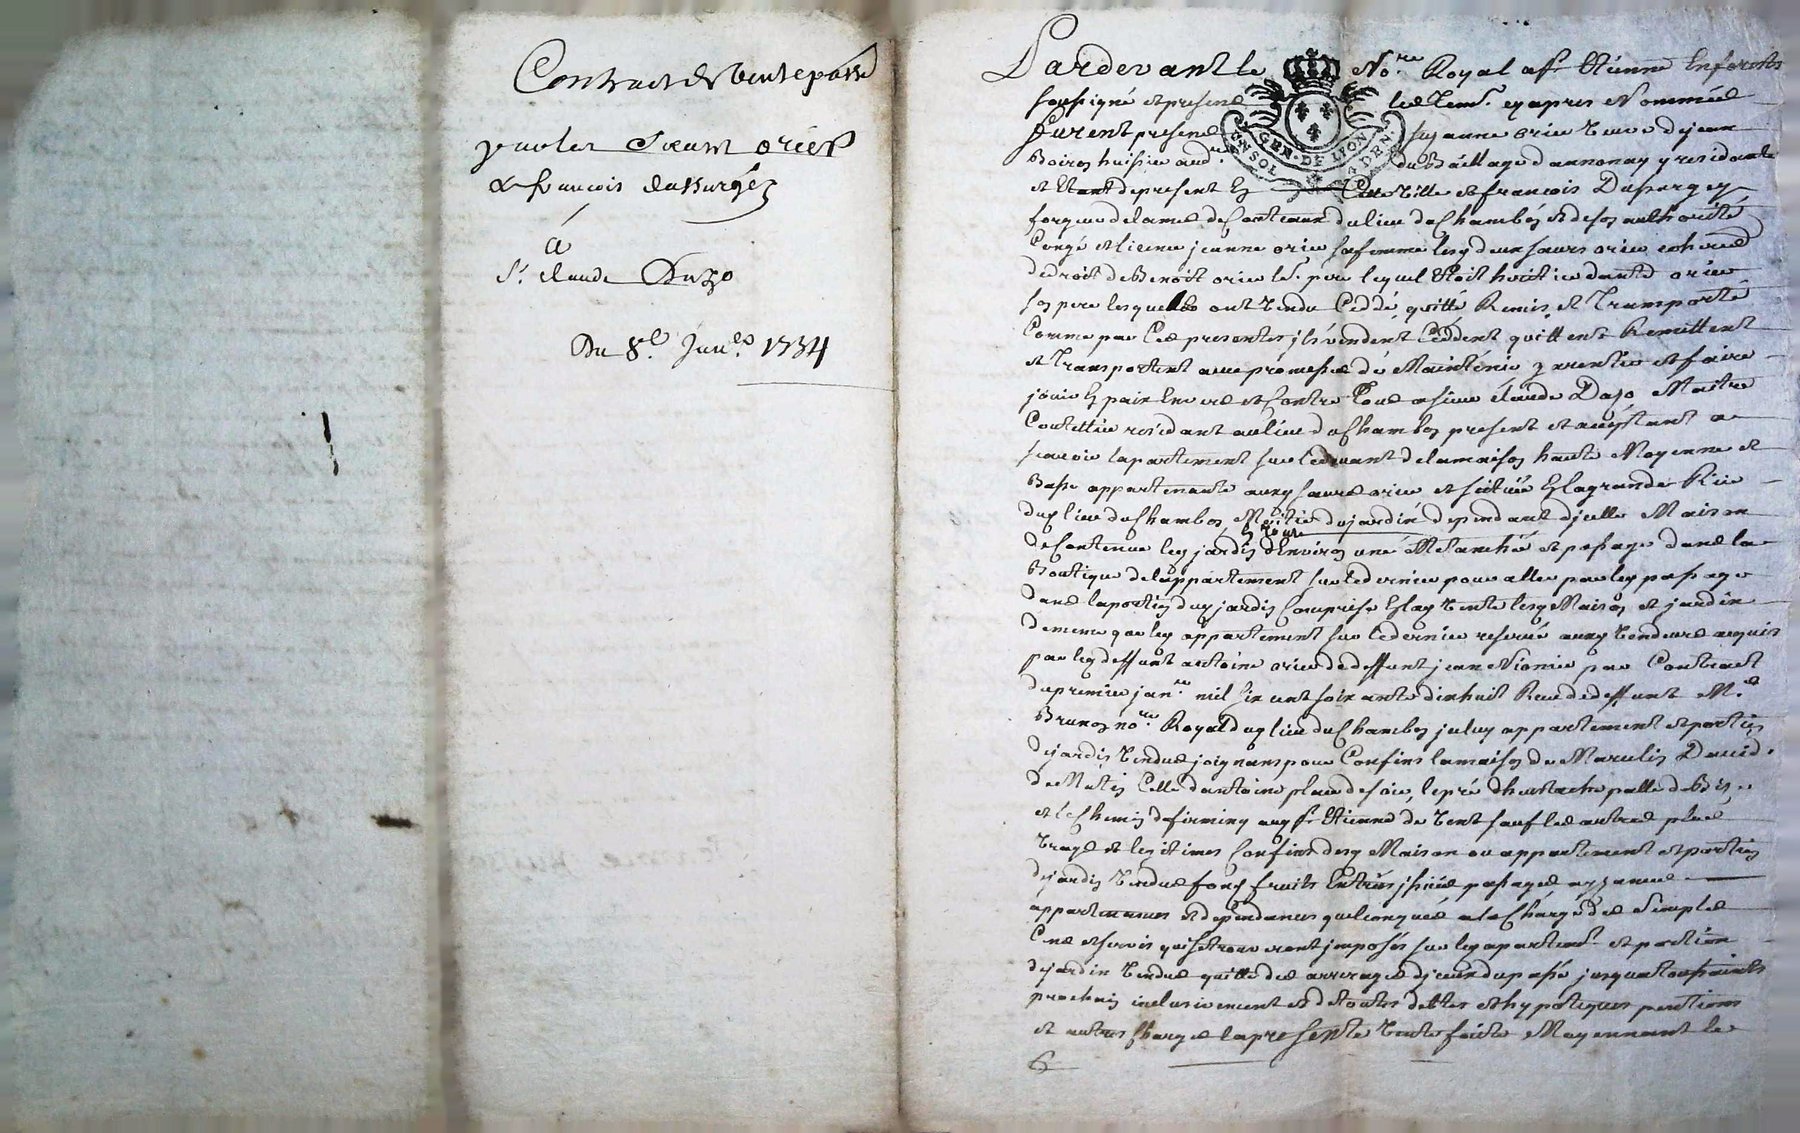 Contract de vente passé
par les Sœurs orier
& françois dussurgéz
à
Sr. claude Duzo
Du 8e. Janer. 1734
Pardevant le Nore. Royal a St. Etienne En forests
soussigné et presens les Tems. cy apres Nommés
furent presens suzanne orier veuve de jean
GEN. DE LYON
du Bailliage d annonay y residante
et Etant de present En Cette Ville et francois Dusurgey
forgeur de lames de Couteaux du lieu du Chambon et de son authorité
Congé et licence jeanne orier sa femme lesq deux sœurs orier
de droit de Benoit orier le. pere lequel Etoit heritier dant. orier
son pere lesquelles ont vendu Ceddé quitté Remis et Transporté
Comme par Ces presentes ils vendent Ceddent quittent Remettent
et Transportent avec promesse de Maintenir garentir et faire
jouir En paix Envers et Contre Tous a sieur claude Dazo Maitre
Coutellier residant au lieu du Chambon present et acceptant a
scavoir lapartement sur le devant de la maison haute Moyenne et
Basse appartenante auxq sœurs orier et située En la grande Rue
duq lieu du Chambon, Moitié du jardin dependant d jcelle Maison
de Contenue led jardin d Environ une et passage dans la
Boutique de lappartement sur le dernier pour aller par led passage
dans la portion dud jardin Comprise En lad vente lesq Maison et jardin
de meme que led appartement sur le dernier reservé auxq vendeurs acquis
par led deffunt antoine orier de deffunt jean par Contract
du premier janer. mil six cent soixante dix huit Receu de deffunt Me.
Brunon nore. Royal dud lieu du Chambon jceluy appartement et portion
de jardin vendus joignans pour Confins la maison de David
Celle dantoine de soie, le pré
et le Chemin de firminy a St. Etienne de vent sauf les autres plus
vrays et legitimes Confins desq Maison ou appartement et portion
de jardin vendus fonds fruits Entrées jssües passages
appartenances et dependances quelconques a la Charge des Simples
Cens et servis qui se trouveront imposés sur led apartemt. et portion
de jardin vendus quitte des arrerages d jceux du passé jusqua toussaints
prochain inclusivement et de toutes dettes et hypoteques pentions
et autres Charges la presente vente faite Moyennant le